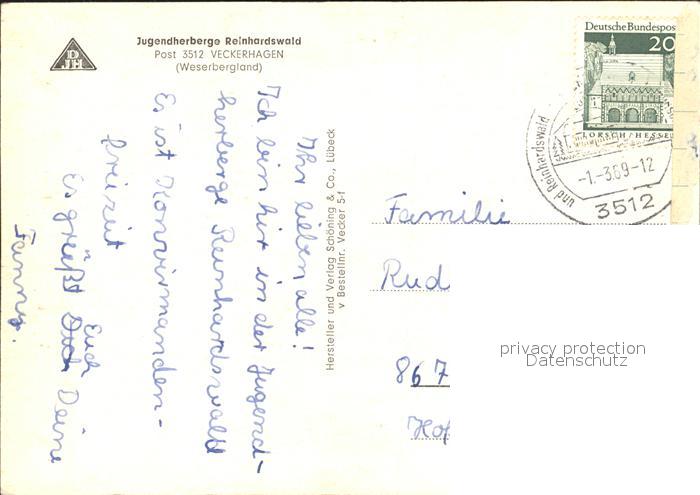 DJH
Jugendherberge Reinhardswald
Post 3512 VECKERHAGEN
(Weserbergland)
Ihr lieben alle!
Ich bin hir in der Jugend-
herberge Reinhardswald
Es ist Konvirmanden-
freizeit
Es grüßt Euch Deine
Fanny.
Hersteller und Verlag Schöning & Co., Lübeck
v Bestellnr. Vecker 5-f
Deutsche Bundespost
20
LORSCH/HESSEN
und Reinhardswald
-1.-3.69-12
3512
Familie
Rud
867
Hof
privacy protection
Datenschutz